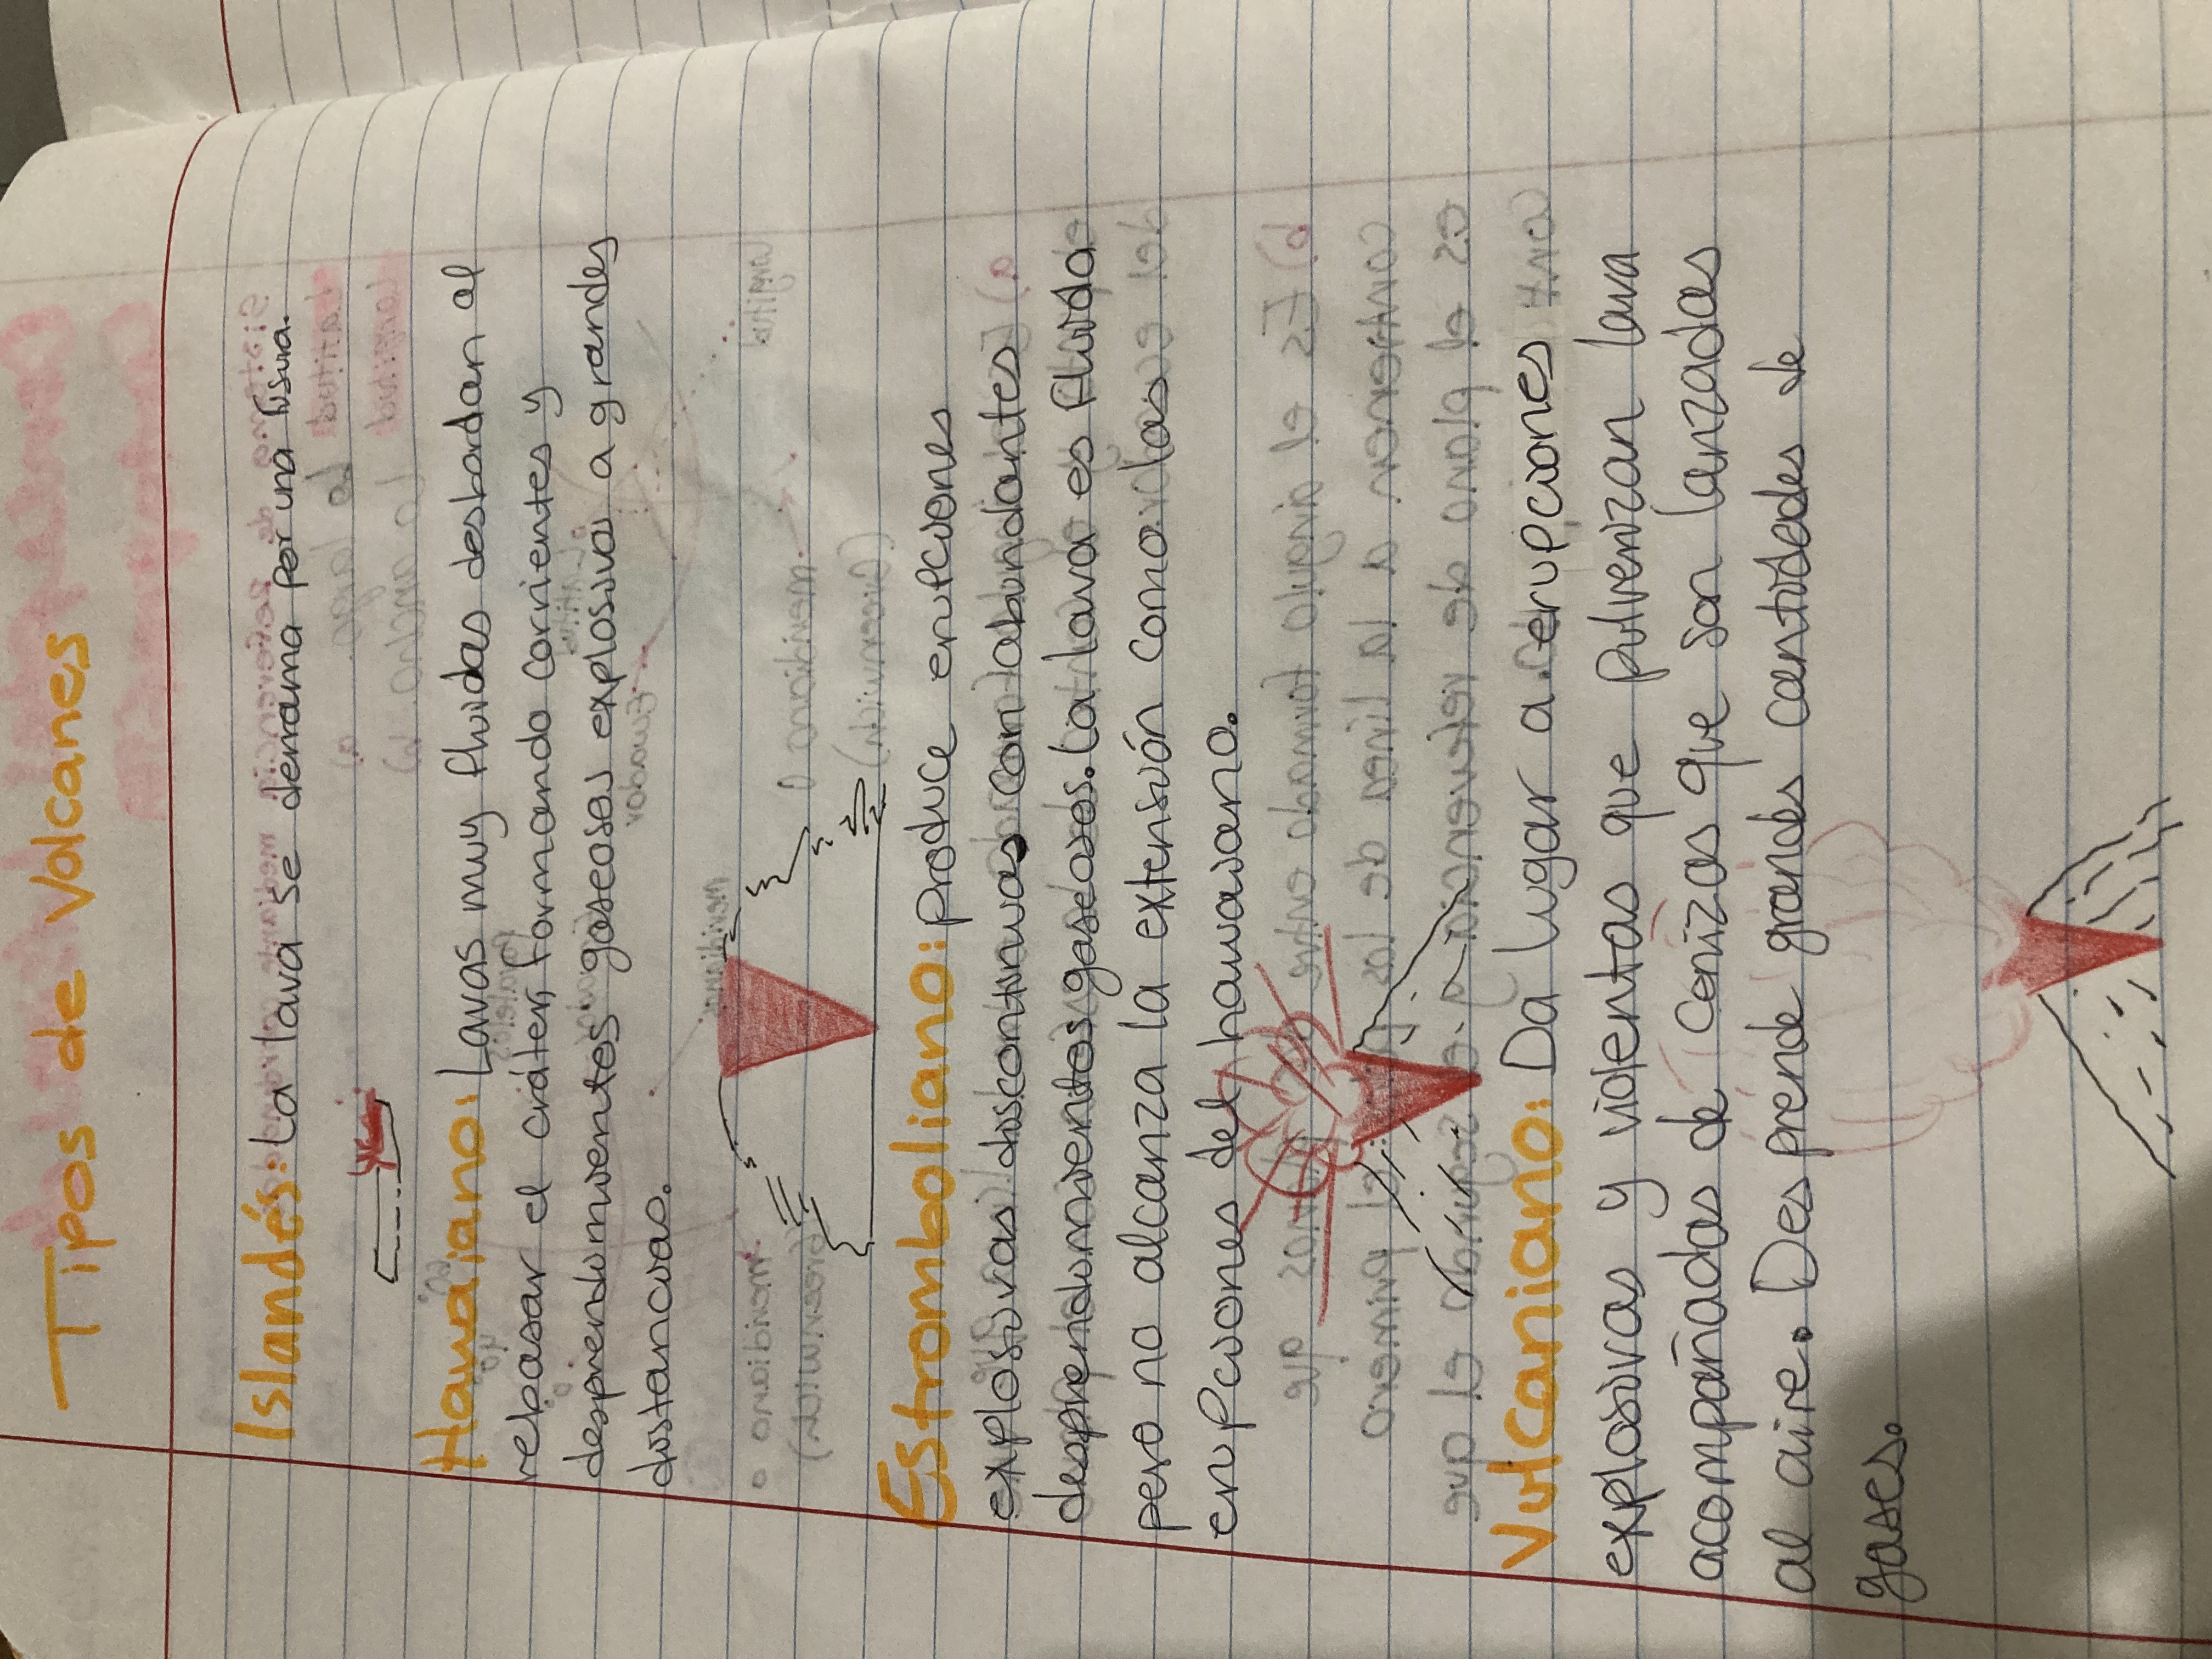 Tipos de Volcanes
Islandés: La lava se derrama por una fisura.
Hawaiano: Lavas muy fluidas desbordan al
rebasar el cráter, formando corrientes y
desprendimientos gaseosos explosivos a grandes
distancias.
Estromboliano: produce erupciones
explosivas discontinuas con abundantes
desprendimientos gaseosos. La lava es fluida
pero no alcanza la extensión como las
erupciones del hawaiano.
Vulcaniano: Da lugar a erupciones
explosivas y violentas que pulverizan lava
acompañadas de cenizas que son lanzadas
al aire. Desprende grandes cantidades de
gases.